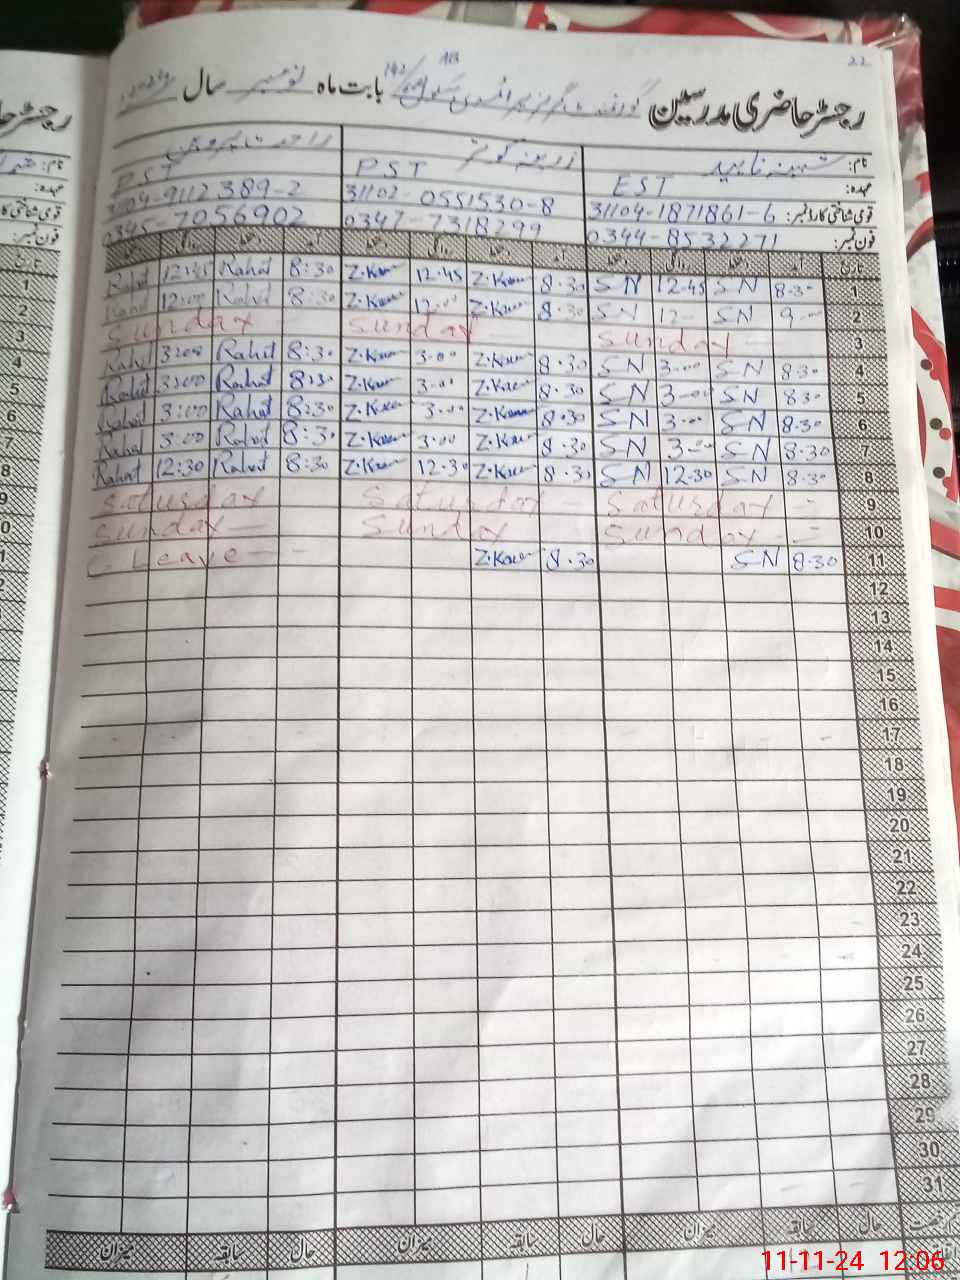 22
رجسٹر حاضری مدرسین گورنمنٹ گرلز پرائمری سکول 142 بابت ماہ نومبر سال 2024
نام: شہینہ ناہید زرینہ کوثر راحت پروین
عہدہ: EST PST PST
قومی شناختی کارڈ نمبر: 31104-1871861-6 31102-0551530-8 31104-9112389-2
فون نمبر: 0344-8532271 0347-7318299 0345-7056902
تاریخ آمد دستخط روانگی دستخط آمد دستخط روانگی دستخط آمد دستخط روانگی دستخط
1 8.30 SN 12.45 SN 8.30 Z.Kau 12.45 Z.Kau 8:30 Rahat 12:45 Rahat
2 9.00 SN 12- SN 8.30 Z.Kau 12.00 Z.Kau 8:30 Rahat 12:00 Rahat
3 Sunday Sunday Sunday
4 8.30 SN 3.00 SN 8.30 Z.Kau 3.00 Z.Kau 8:30 Rahat 3:00 Rahat
5 8.30 SN 3.00 SN 8.30 Z.Kau 3.00 Z.Kau 8:30 Rahat 3:00 Rahat
6 8.30 SN 3.00 SN 8.30 Z.Kau 3.00 Z.Kau 8:30 Rahat 3:00 Rahat
7 8.30 SN 3.00 SN 8.30 Z.Kau 3.00 Z.Kau 8:30 Rahat 3:00 Rahat
8 8.30 SN 12.30 SN 8.30 Z.Kau 12.30 Z.Kau 8:30 Rahat 12:30 Rahat
9 Saturday Saturday Saturday
10 Sunday Sunday Sunday
11 8.30 SN 8.30 Z.Kau C. Leave
12
13
14
15
16
17
18
19
20
21
22
23
24
25
26
27
28
29
30
31
حال سابقہ میزان حال سابقہ میزان حال سابقہ میزان
11-11-24 12:06